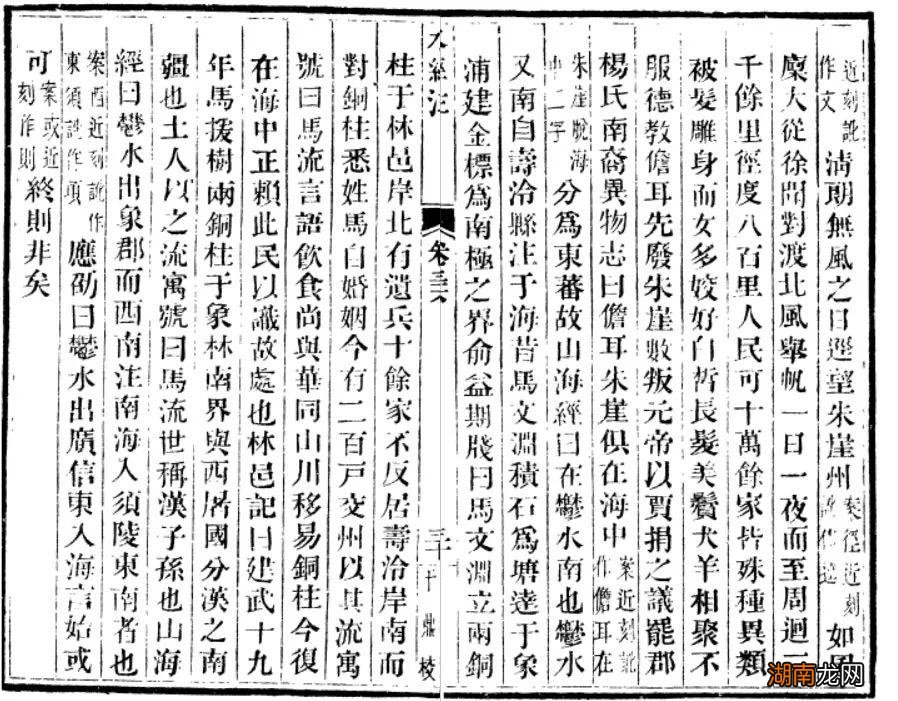 近刻訛作文清朗無風之日逕望朱崖州案徑近刻訛作如
廩大從徐聞對渡北風舉帆一日一夜而至周迴二
千餘里徑度八百里人民可十萬餘家皆殊種異類
被髮雕身而女多姣好白晳長髮美鬢犬羊相聚不
服德教儋耳先廢朱崖數叛元帝以賈捐之議罷郡
楊氏南裔異物志曰儋耳朱崖俱在海中案近刻訛作儋耳在
朱崖脫海中二字分爲東蕃故山海經曰在鬱水南也鬱水
又南自壽泠縣注于海昔馬文淵積石爲塘達于象
浦建金標爲南極之界俞益期牋曰馬文淵立兩銅
水經注 卷三六 三十
柱于林邑岸北有遺兵十餘家不反居壽泠岸南而
對銅柱悉姓馬自婚姻今有二百戸交州以其流寓
號曰馬流言語飲食尚與華同山川移易銅柱今復
在海中正賴此民以識故處也林邑記曰建武十九
年馬援樹兩銅柱于象林南界與西屠國分漢之南
疆也土人以之流寓號曰馬流世稱漢子孫也山海
經曰鬱水出象郡而西南注南海入須陵東南者也
案西近刻訛作東須訛作項應劭曰鬱水出廣信東入海言始或
可案或近刻作則終則非矣
湖南龙网